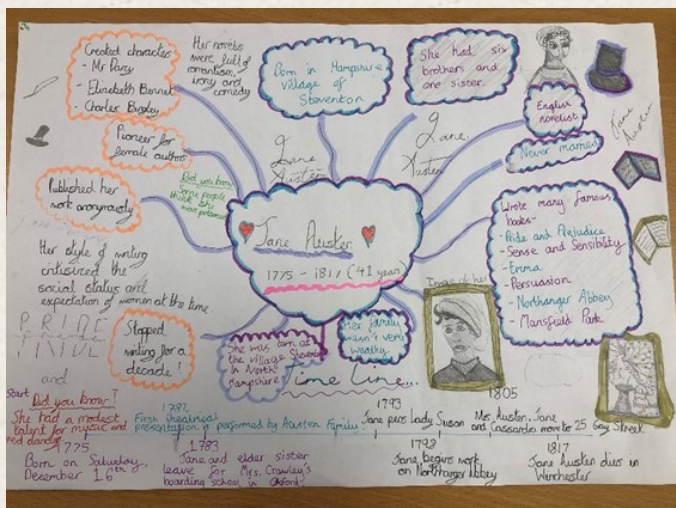 Created characters
- Mr Darcy
- Elizabeth Bennet
- Charles Bingley
Her novels
were full of
romanticism,
irony and
comedy
Born in Hampshire
village of
Steventon
She had six
brothers and
one sister.
English
novelist
Jane
Austen
Pioneer for
female author
Jane
Austen
Jane
Austen
Never married
Did you know:
Some people
think she
was poisoned
Published her
work anonymously
Jane Austen
1775 - 1817 (41 years)
Wrote many famous
books-
- Pride and Prejudice
- Sense and Sensibility
- Emma
- Persuasion
- Northanger Abbey
- Mansfield Park
Her style of writing
criticised the
social status and
expectation of women at the time
PRIDE
and
Stopped
writing for a
decade!
She was born at
the village Steventon
in North
Hampshire
Her family
wasn't very
wealthy
Image of her
Time line...
Start
Did you know?
She had a modest
talent for music and
dancing
1775
Born on Saturday,
December 16th
1782
First theatrical
presentation is performed by Austen Family
1783
Jane and elder sister
leave for Mrs. Crawley's
boarding school in Oxford
1793
Jane pens Lady Susan
1798
Jane begins work
on Northanger Abbey
1805
Mrs. Austen, Jane
and Cassandra move to 25 Gay Street
1817
Jane Austen dies in
Winchester